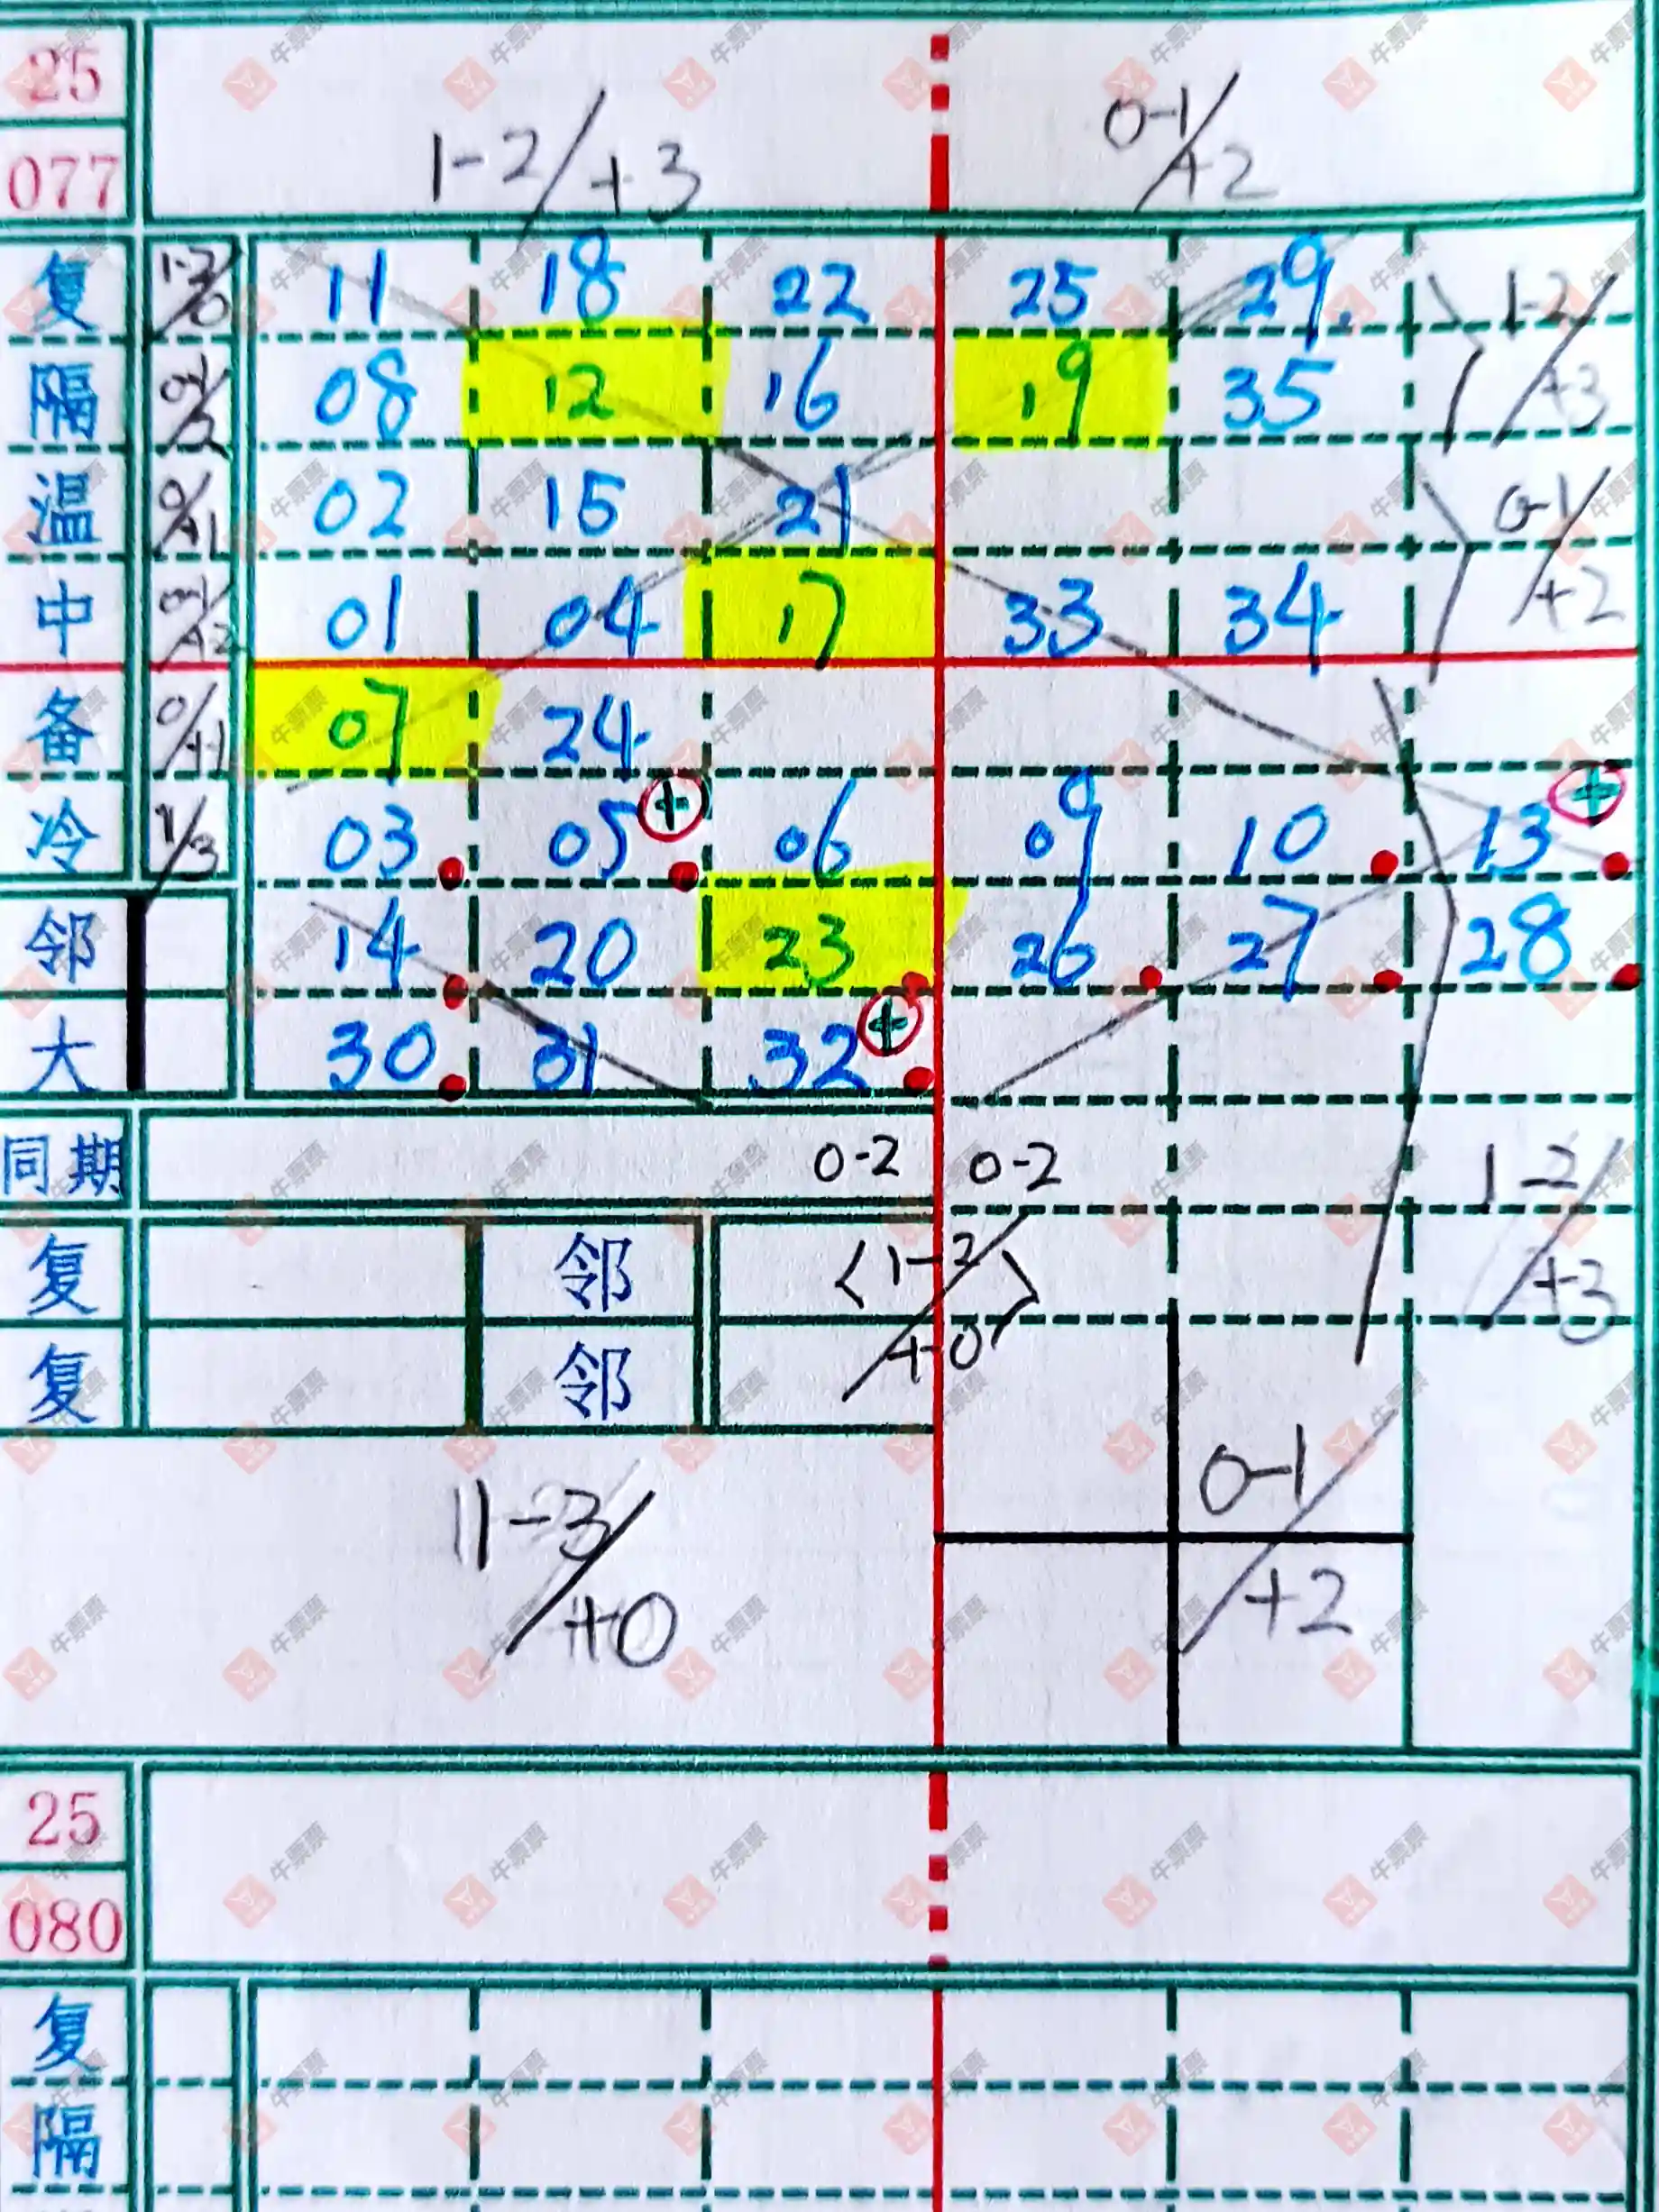 25
077
1-2/+3 0-1/+2
复 1-2/0 11 18 22 25 29. 1-2/+3
隔 08 12 16 19 35
温 0/+1 02 15 21 0-1/+2
中 0-1/+2 01 04 17 33 34
备 0/+1 07 24
冷 1/3 03 05 + 06 09 10 13 +
邻 14 20 23 26 27 28
大 30 31 32 +
同期 0-2 0-2 1-2/+3
复 邻 <1-2/+0>
复 邻
11-3/+0 0-1/+2
25
080
复
隔
牛票票